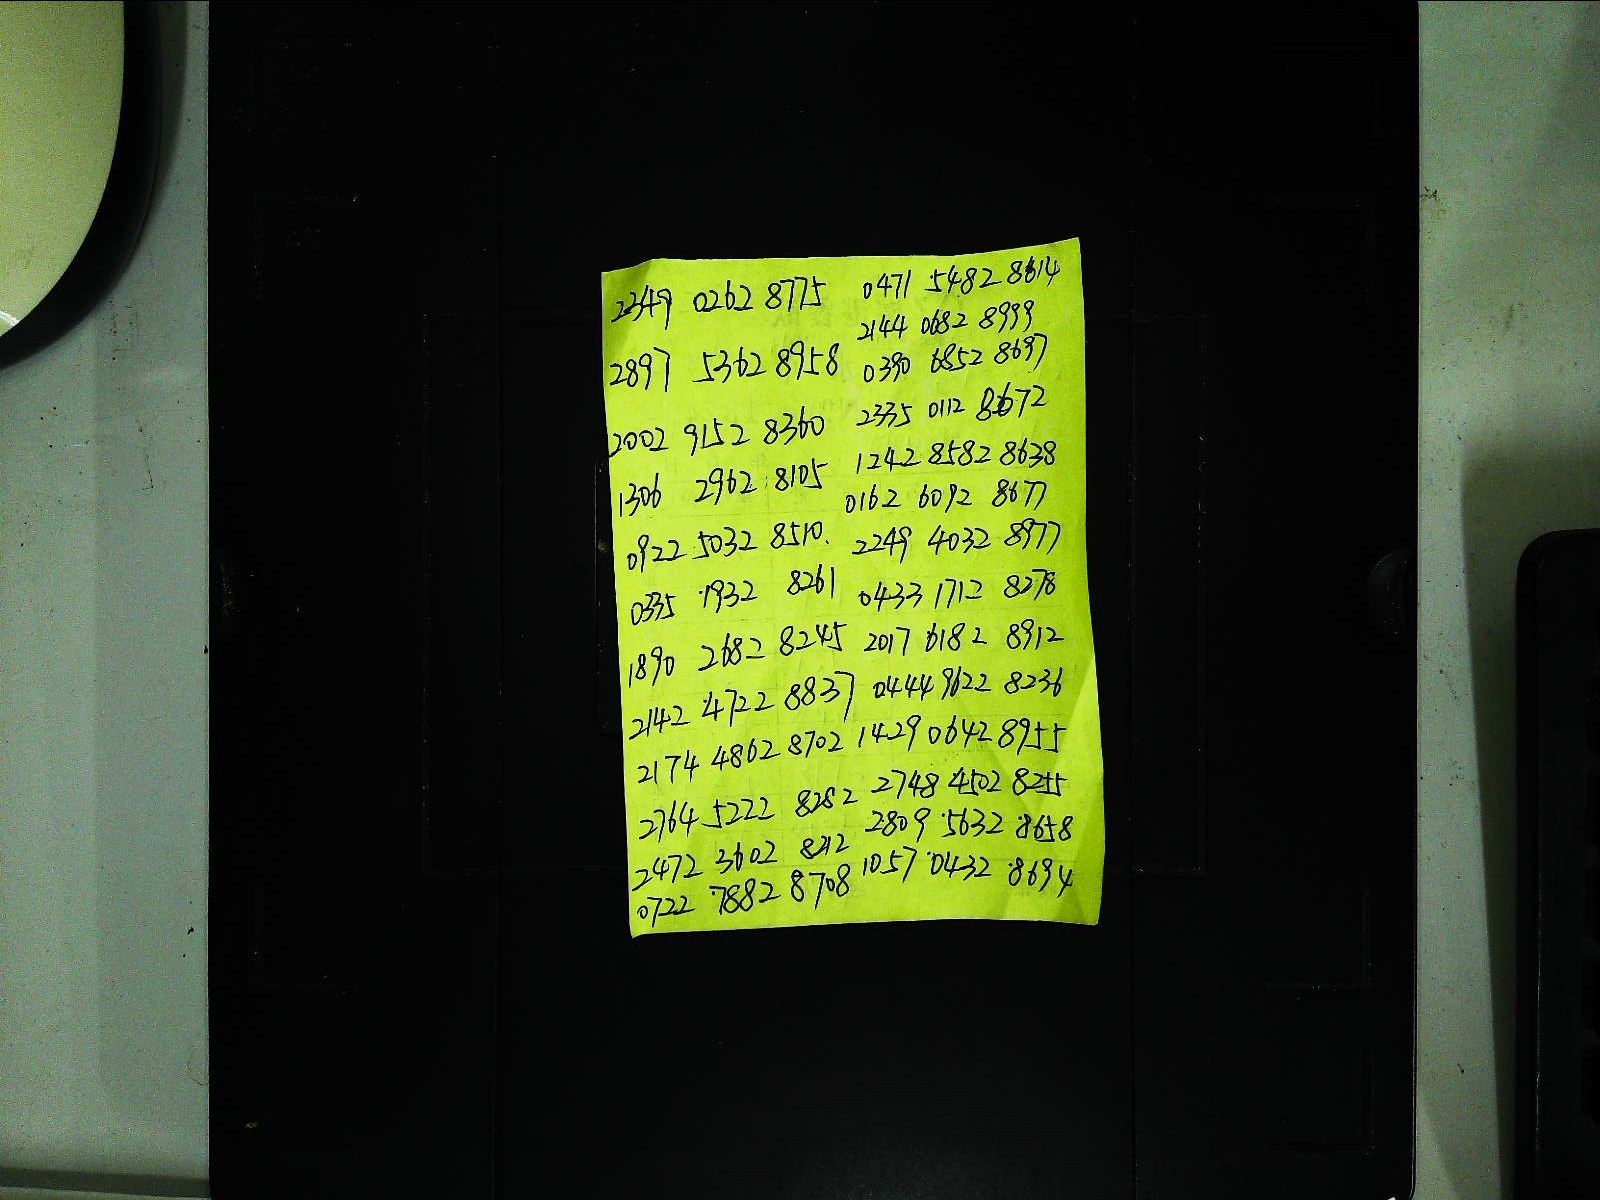 2349 0262 8775 0471 5482 8614
2144 0682 8999
2897 5362 8958 0390 6852 8697
2002 9152 8360 2335 0112 8672
1306 2962 8105 1242 8582 8638
0162 6092 8677
0922 5032 8510. 2249 4032 8977
0335 1932 8261 0433 1712 8278
1890 2682 8245 2017 6182 8912
2142 4722 8837 0444 9622 8236
2174 4862 8702 1429 0642 8955
2764 5222 8282 2748 4502 8255
2472 3602 8212 2809 5632 8658
0722 7882 8708 1057 0432 8694